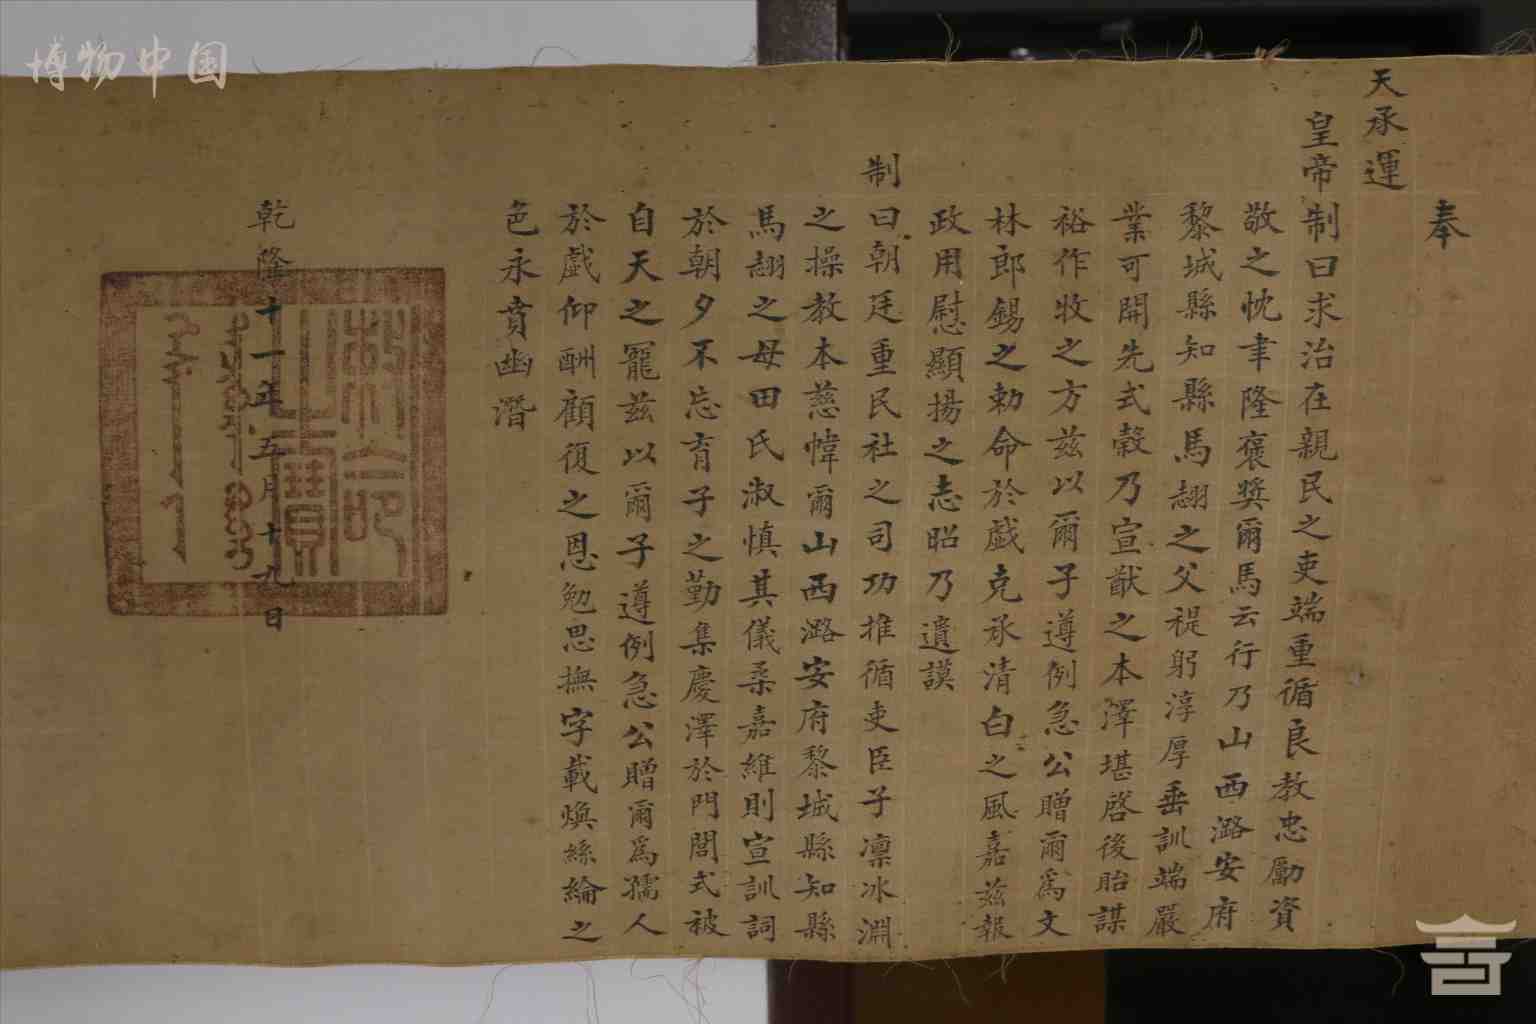 奉
天承運
皇帝制曰求治在親民之吏端重循良教忠勵資
敬之忱聿隆褒奬爾馬云行乃山西潞安府
黎城縣知縣馬翮之父禔躬淳厚垂訓端嚴
業可開先式榖乃宣猷之本澤堪啓後貽謀
裕作牧之方兹以爾子遵例急公贈爾爲文
林郎錫之勅命於戯克承清白之風嘉兹報
政用慰顯揚之志昭乃遺謨
制曰朝廷重民社之司功推循吏臣子凛冰淵
之操教本慈幃爾山西潞安府黎城縣知縣
馬翮之母田氏淑慎其儀柔嘉維則宣訓詞
於朝夕不忘育子之勤集慶澤於門閭式被
自天之寵兹以爾子遵例急公贈爾爲孺人
於戯仰酬顧復之恩勉思撫字載煥絲綸之
色永賁幽潛
乾隆十一年五月十九日
敕命之寶
博物中国